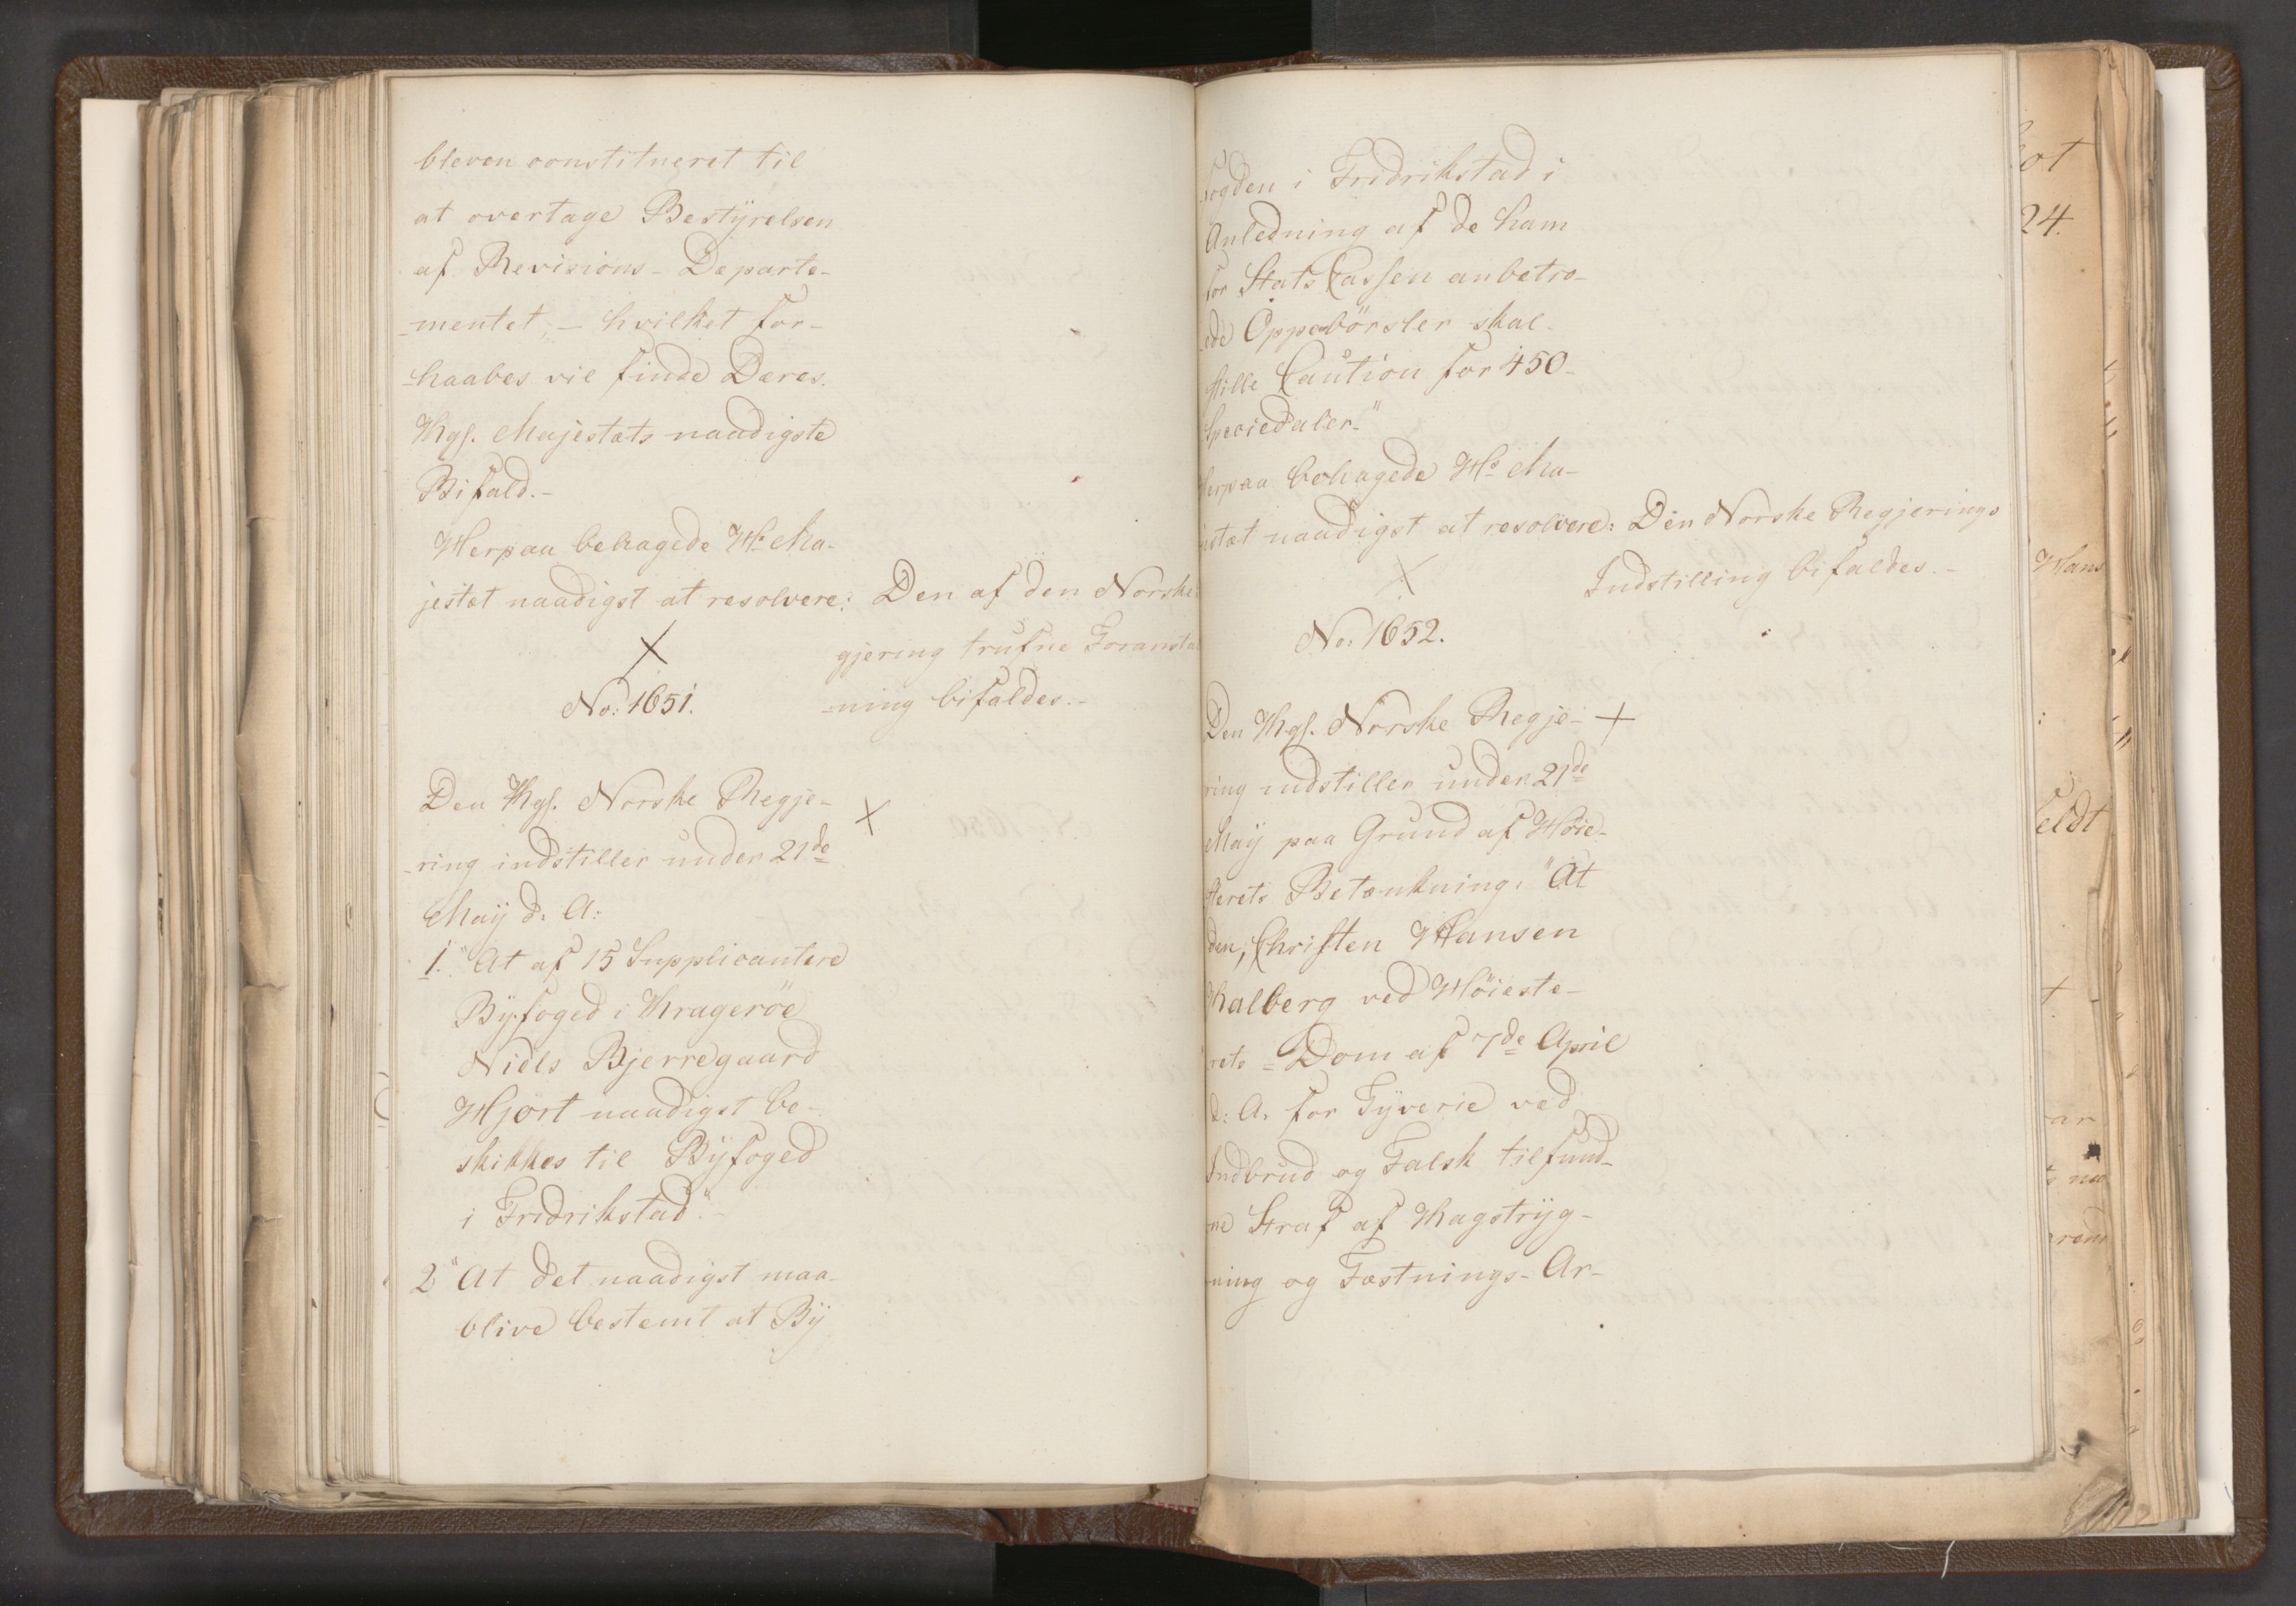 bleven constitueret til
at overtage Bestÿrelsen
af Revisions-Departe-
-mentet, - hvilket for-
-haabes vil finde Deres
Kgl. Majestæts naadigste
Bifald.-
Herpaa behagede Hs Ma-
jestæt naadigst at resolvere: Den af den Norske
gjering trufne Foransta
-ning bifaldes.-
No: 1651.
Den Kgl. Norske Regje-
-ring indstiller under 21de
Maÿ d: A:
1. "At af 15 Supplicantere
Bÿfoged i Kragerøe
Niels Bjerregaard
Hjort naadigst be-
skikkes til Bÿfoged
i Fredrikstad".-
2 "At det naadigst maa
blive bestemt at Bÿ
fogden i Fredrikstad i
Anledning af de ham
for Stats Cassen anbetro-
ede Oppebörsler skal
stille Caution for 450
Speciedaler"
Herpaa behagede Hs Ma-
jestæt naadigst at resolvere: Den Norske Regjerings
Indstilling bifaldes.-
No. 1652.
Den Kgl. Norske Regje-
ring indstiller under 21de
Maÿ paa Grund af Höie-
sterets Betænkning: "At
den, Christen Hansen
Kalberg ved Höieste-
rets Dom af 7de April
d: A. for Tÿverie ved
Indbrud og Falsk tilfund-
ne Straf af Kagstrÿg-
ning og Fæstnings-Ar-
24.
Hans
feldt